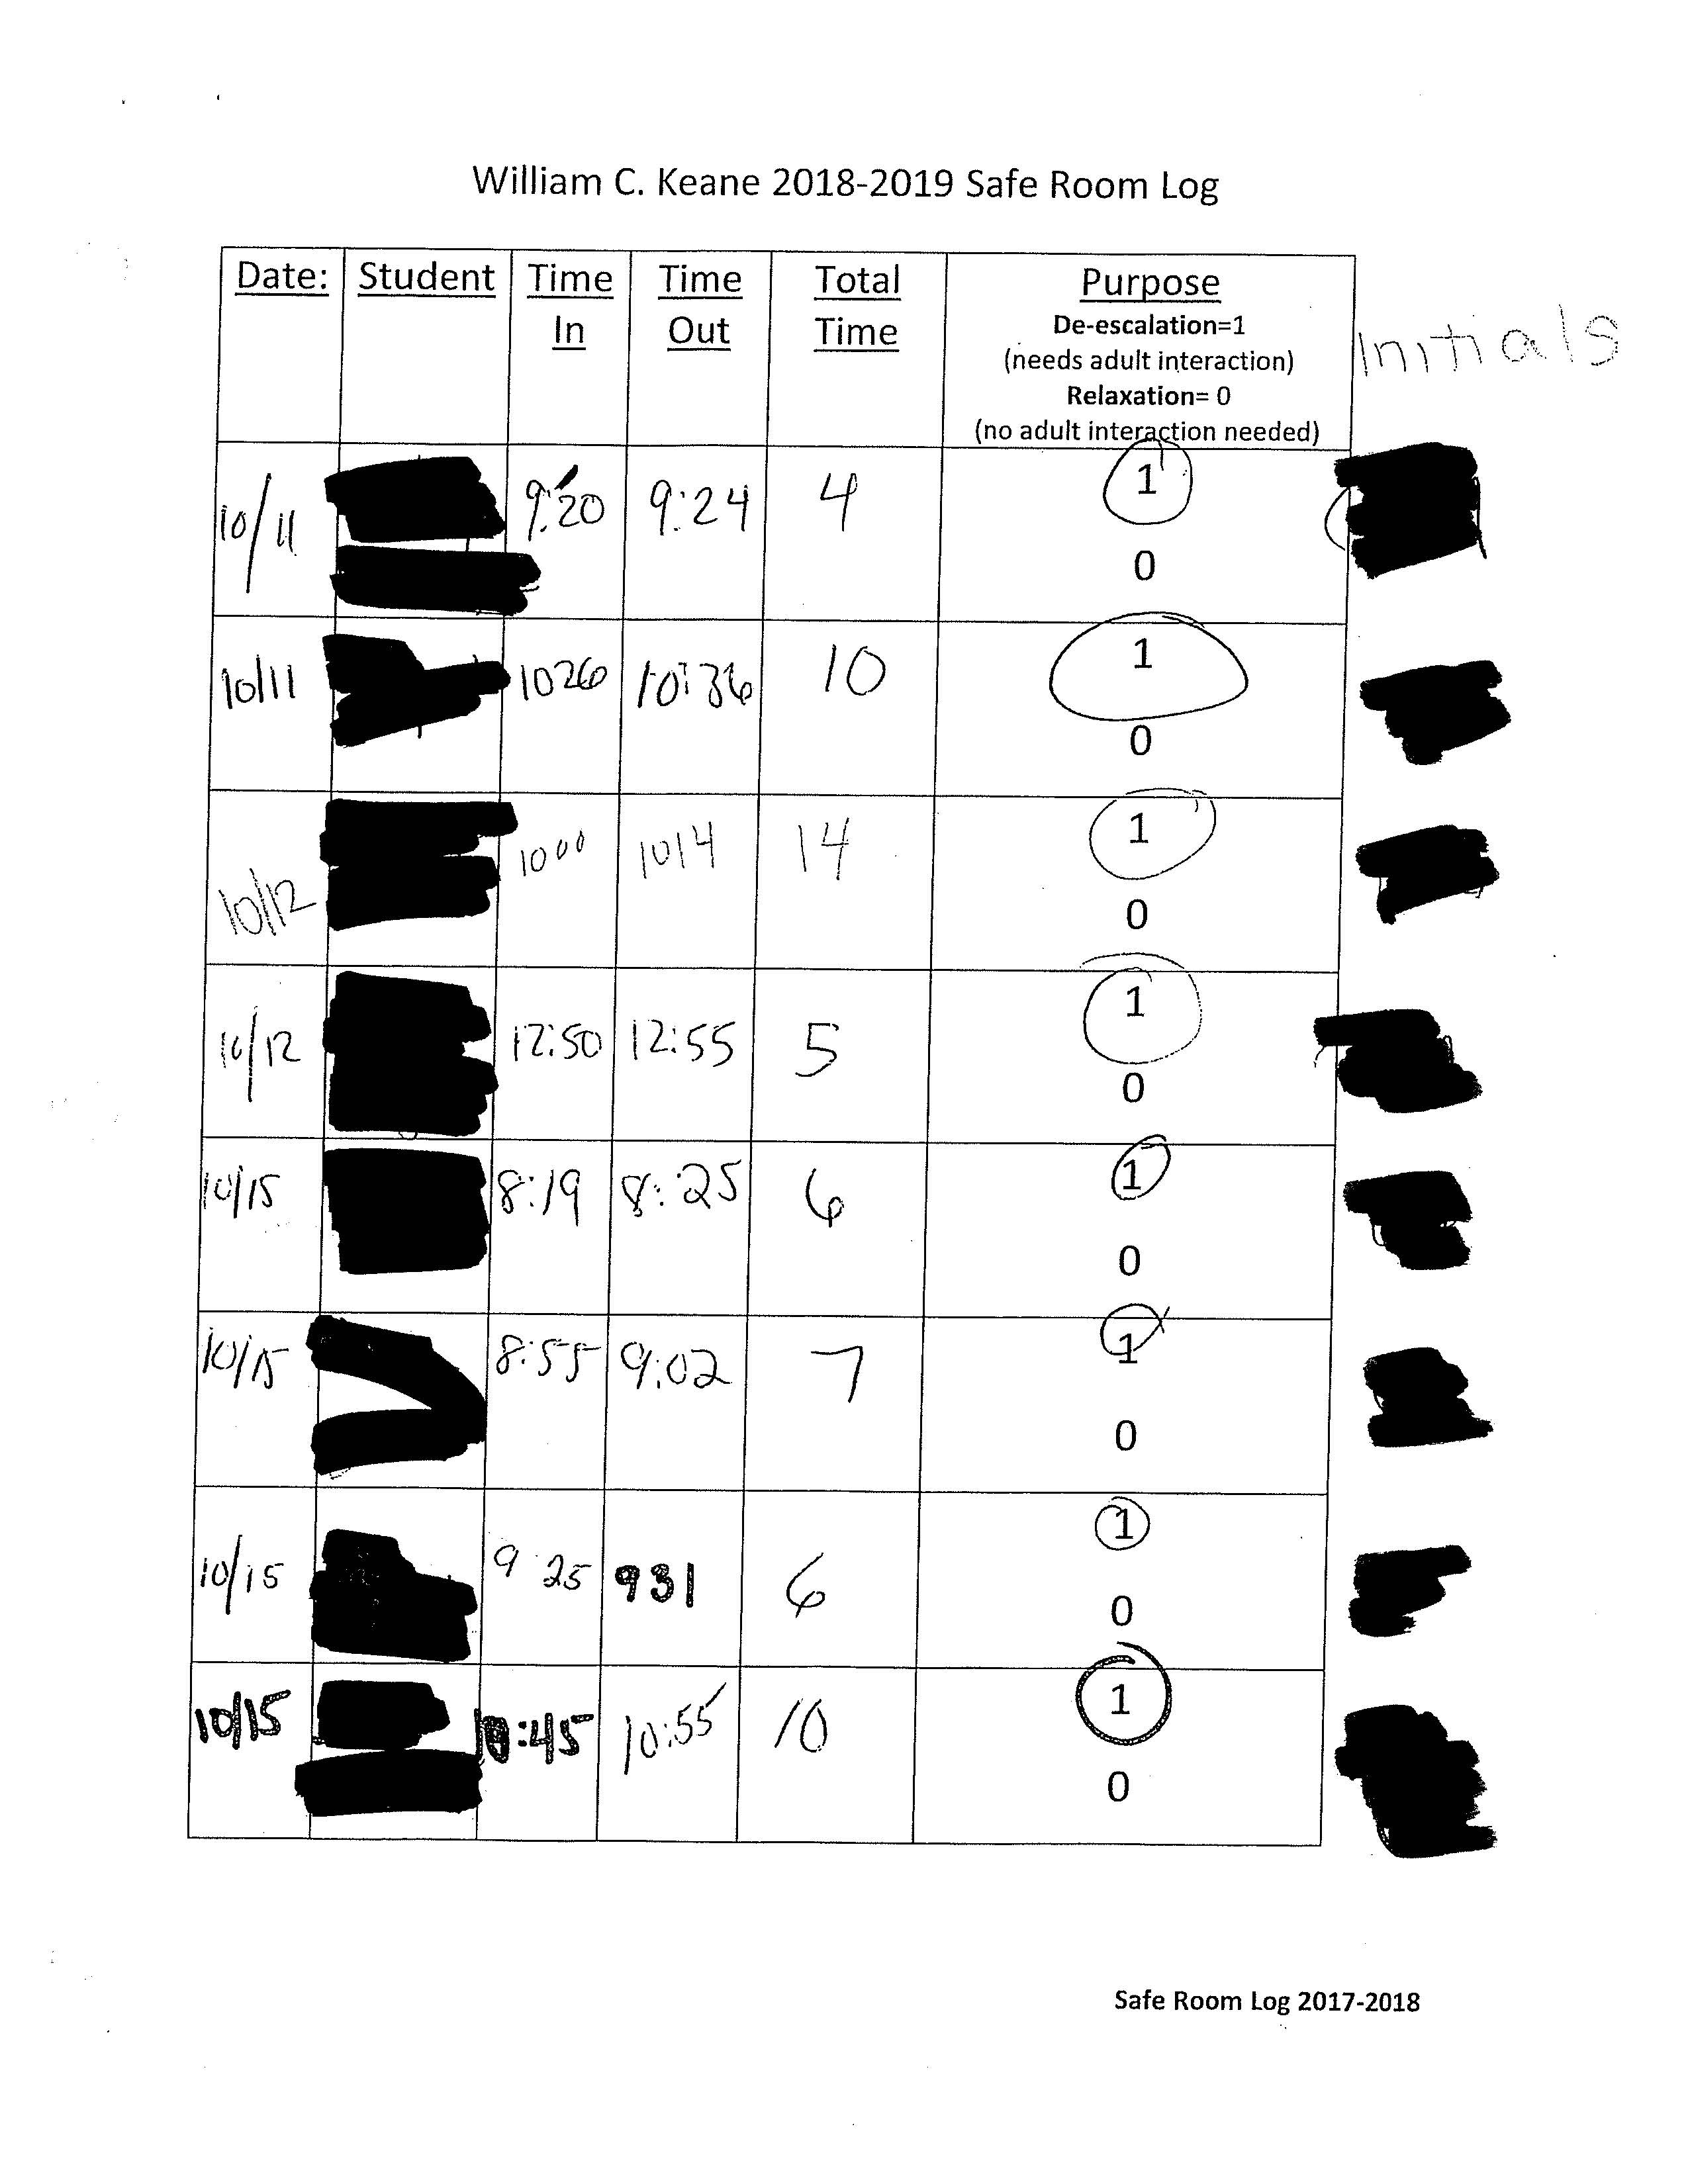 William C. Keane 2018-2019 Safe Room Log
Date: Student Time In Time Out Total Time Purpose
De-escalation=1
(needs adult interaction)
Relaxation= 0
(no adult interaction needed)
Initials
10/11 9:20 9:24 4 1
0
10/11 1026 10:36 10 1
0
10/12 1000 1014 14 1
0
10/12 12:50 12:55 5 1
0
10/15 8:19 8:25 6 1
0
10/15 8:55 9:02 7 1
0
10/15 9 25 931 6 1
0
10/15 10:45 10:55 10 1
0
Safe Room Log 2017-2018